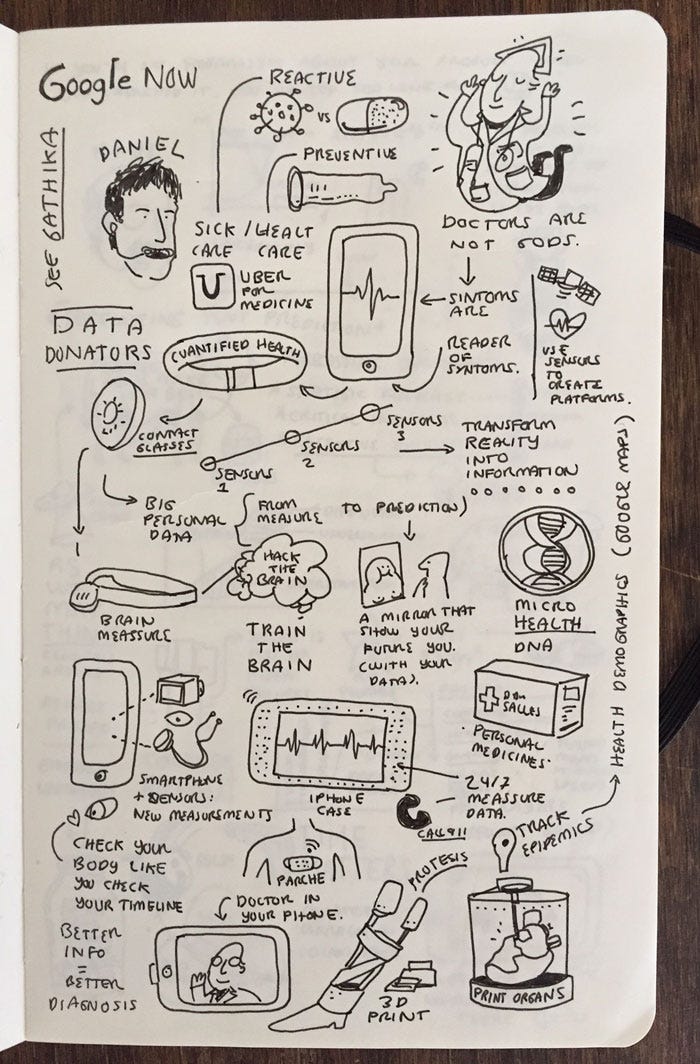 Google NOW
REACTIVE
VS
PREVENTIVE
SEE GATHIKA
DANIEL
SICK / HEALT
CARE CARE
U
UBER
FOR
MEDICINE
DOCTORS ARE
NOT GODS.
SINTOMS
ARE
READER
OF
SYNTOMS.
USE
SENSORS
TO
CREATE
PLATFORMS.
DATA
DONATORS
CUANTIFIED HEALTH
CONTACT
GLASSES
SENSORS
1
SENSORS
2
SENSORS
3
TRANSFORM
REALITY
INTO
INFORMATION
BIG
PERSONAL
DATA
FROM
MEASURE
TO PREDICTION)
HACK
THE
BRAIN
BRAIN
MEASSURE
TRAIN
THE
BRAIN
A MIRROR THAT
SHOW YOUR
FUTURE YOU.
(WITH YOUR
DATA).
MICRO
HEALTH
DNA
HEALTH DEMOGRAPHICS (GOOGLE MAPS)
SALLES
PERSONAL
MEDICINES.
SMARTPHONE
+ SENSORS:
NEW MEASUREMENTS
IPHONE
CASE
24/7
MEASSURE
DATA.
CALL 911
TRACK
EPIDEMICS
CHECK YOUR
BODY LIKE
YOU CHECK
YOUR TIMELINE
PARCHE
DOCTOR IN
YOUR PHONE.
PROTESIS
BETTER
INFO
=
BETTER
DIAGNOSIS
3D
PRINT
PRINT ORGANS